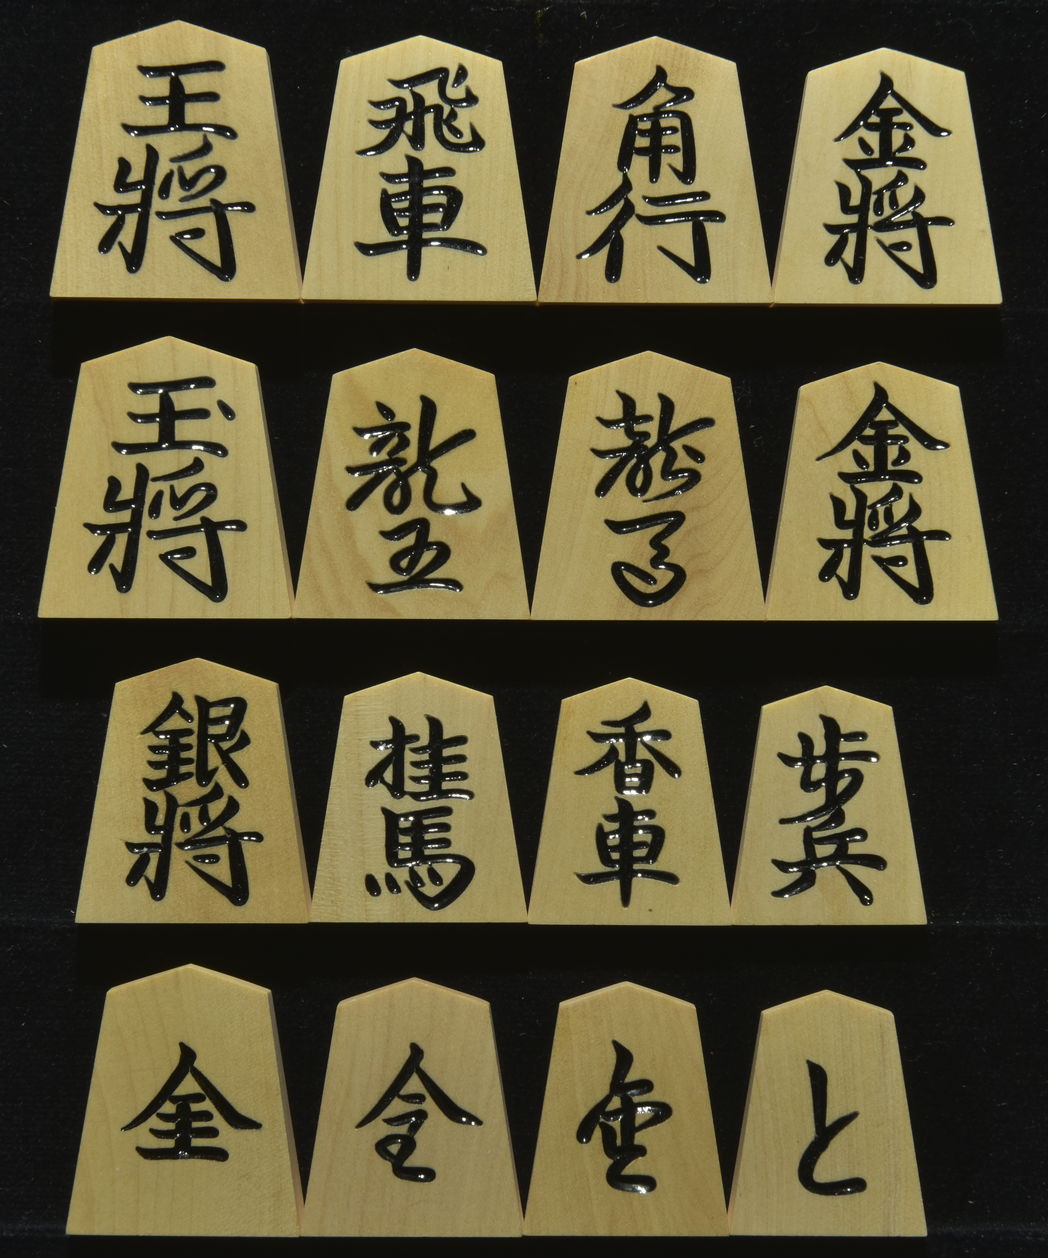 王將 飛車 角行 金將
玉將 龍王 龍馬 金將
銀將 桂馬 香車 歩兵
金 全 と